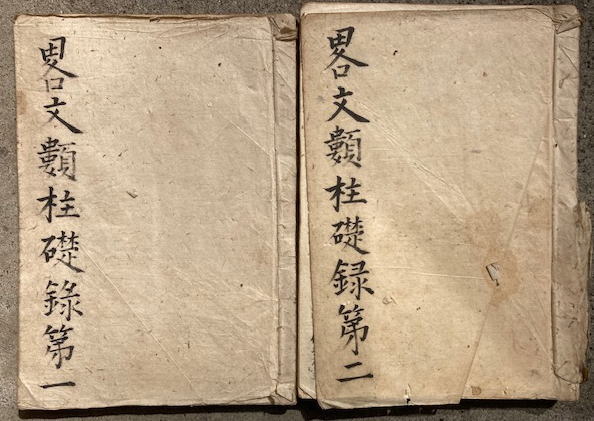 畧文類柱礎錄第一
畧文類柱礎録第二